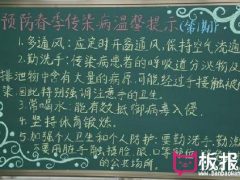 预防春季传染病温馨提示(第1期)
1、多通风:应定时开窗通风,保持空气流通
2、勤洗手:传染病患者的呼吸道分泌物及
排泄物中含有大量的病原,可能经过手接触被
染,因此特别强调注意手的卫生。
3、常喝水:能有效抵御病毒入侵。
4、坚持体育锻炼。
5、加强个人卫生和个人防护:要勤洗手,勤洗
不要用脏手触摸脸、眼、口等
的公共场所。
板报
www.banbaowang.com